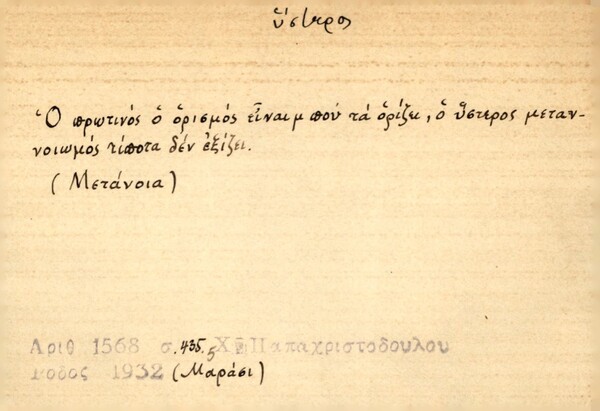 ὕστερος
Ὁ πρωτινός ὁ ὁρισμός εἶναιμ πού τά ὁρίζει, ὁ ὕστερος μεταν-
νοιωμός τίποτα δέν ἐξίζει.
(Μετάνοια)
Αριθ 1568 σ. 435, Χ. Παπαχριστοδουλου
Ροδος 1932 (Μαράσι)